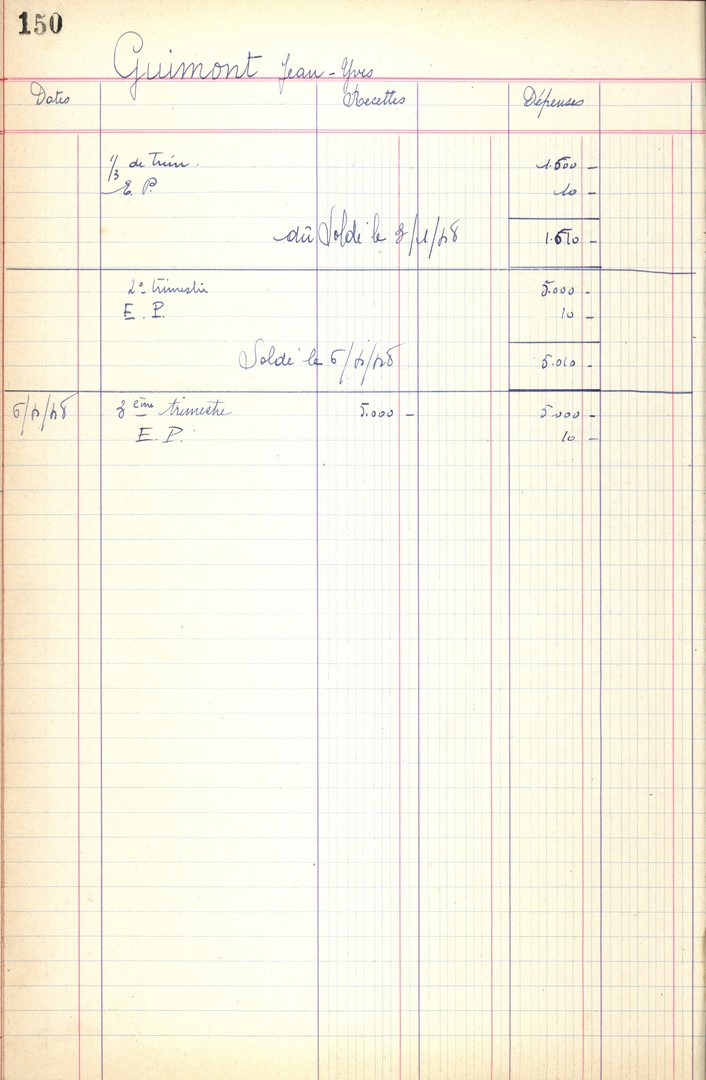 150
Guimont Jean-Yves
Dates Recettes Dépenses
1/3 de Trim. 1.600 -
E. P. 10 -
dû Soldé le 3/1/48 1.610 -
2e trimestre 5.000 -
E. P. 10 -
Soldé le 6/4/48 5.010 -
6/4/48 3ème trimestre 5.000 - 5.000 -
E. P. 10 -